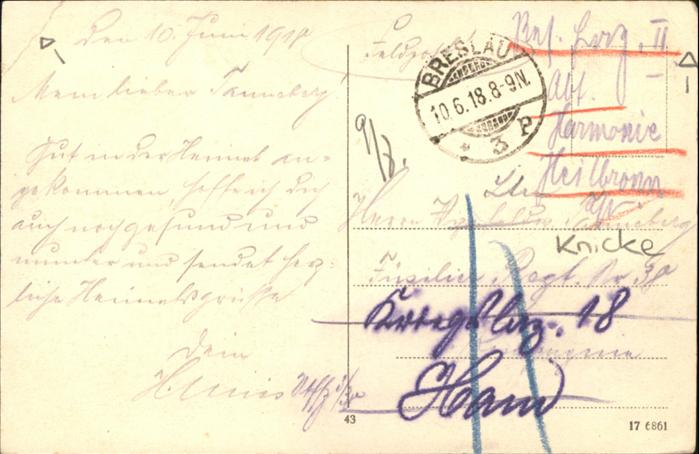 Den 10. Juni 1918
Mein lieber Tanneberg!
Gut in der Heimat an=
gekommen, hoffe ich dich
auch noch gesund und
munter und sendet herz=
liche Heimatsgrüsse
Dein
Feldpost
BRESLAU
10.6.18.8-9N.
* 3 P
Res. Laz. II
Abt.
Harmonie
Heilbronn
9/7.
Herrn Tanneberg
Knicke
Füsilier Regt. Nr. 38
Kriegslaz. 18
Ham
43
17 6861